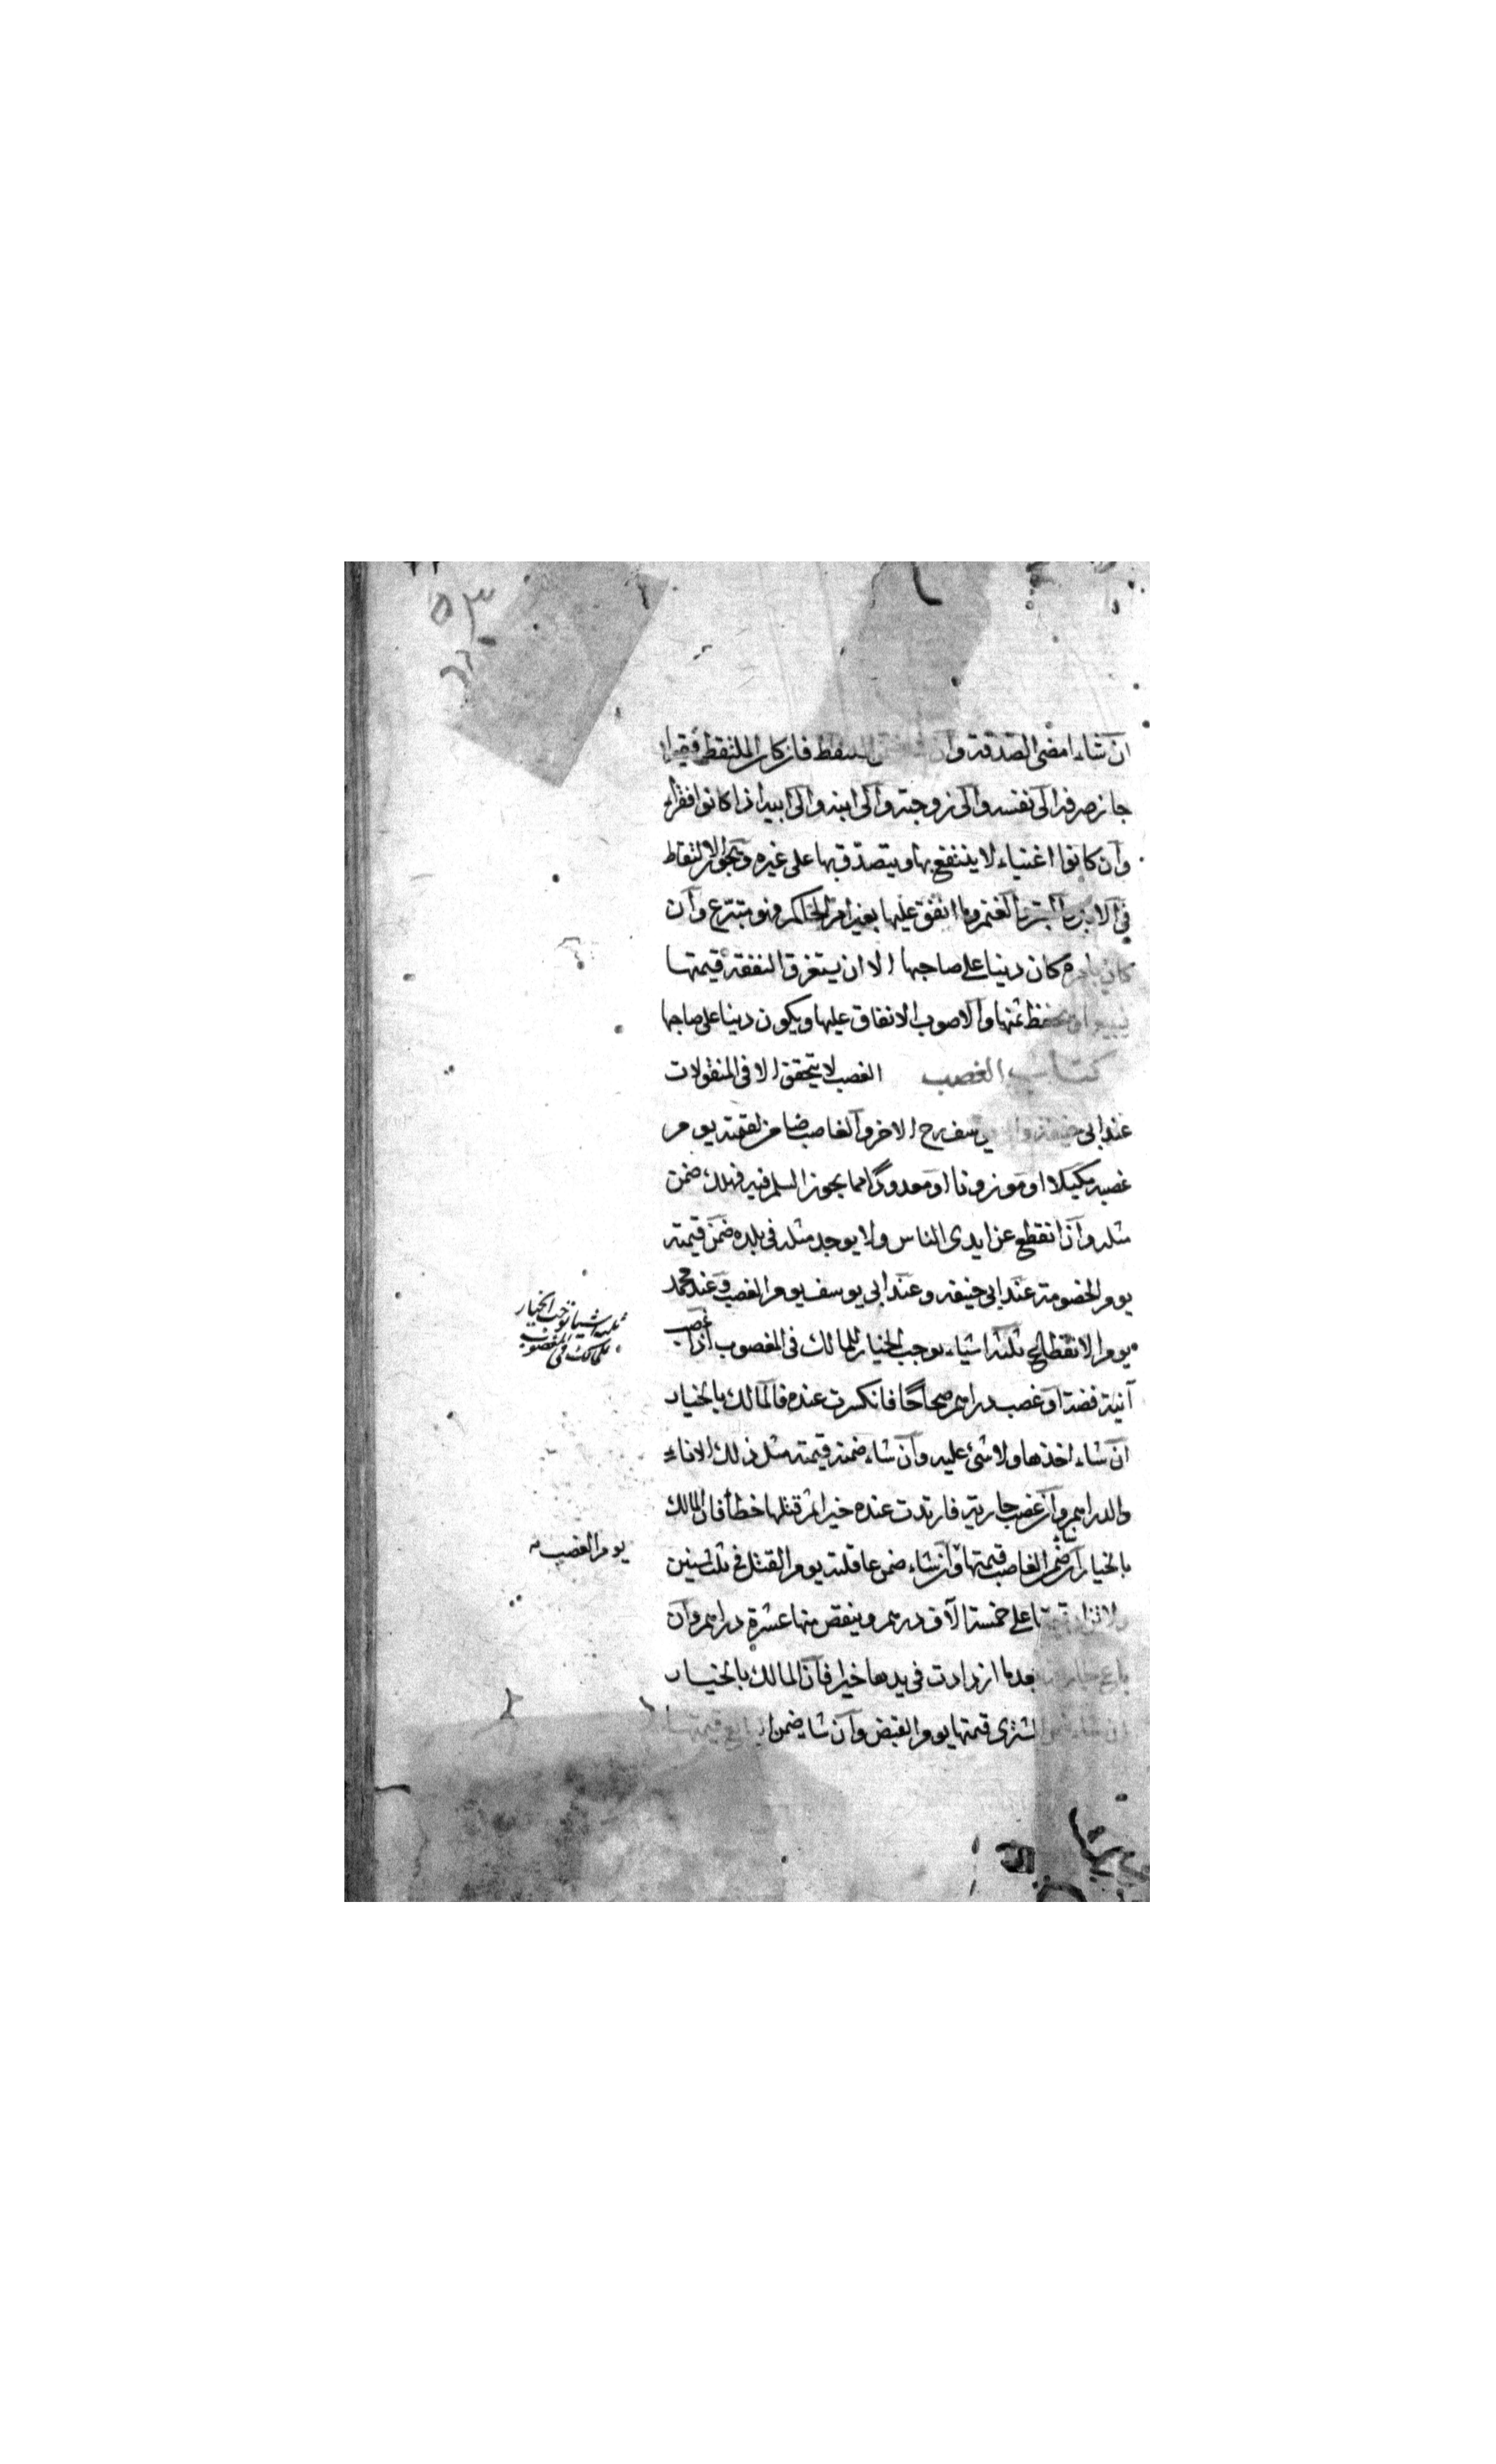 ان شاء امضى الصدقة وان الملتقط فان كان الملتقط فقيرا
جاز صرفه الى نفسه والى زوجته والى ابنه والى ابيه اذا كانوا فقراء
وان كانوا اغنياء لا ينتفع بها ويتصدق بها على غيره ويجوز الالتقاط
في الابل والبقر والغنم وما انفق عليها بغير امر الحاكم فهو متبرع وان
كان بامره كان دينا على صاحبها الا ان يستغرق النفقة قيمتها
يبيع او يحفظ ثمنها والاصوب الانفاق عليها ويكون دينا على صاحبها
كتاب الغصب الغصب لا يتحقق الا في المنقولات
عند ابي حنيفة وابي يوسف رح الاخر والغاصب ضامن لقيمته يوم
غصبه مكيلا او موزونا او معدودا مما يجوز السلم فيه فهلك ضمن
مثله وان انقطع عن ايدى الناس ولا يوجد مثله فى بلده ضمن قيمته
يوم الخصومة عند ابى حنيفه وعند ابى يوسف يوم الغصب وعند محمد
يوم الانقطاع ثلثة اشياء يوجب الخيار للمالك فى المغصوب اذا غصب
آنية فضة او غصب دراهم صحاحا فانكسرت عنده فالمالك بالخيار
ان شاء اخذها ولا شئ عليه وان شاء ضمنه قيمته مثل ذلك الاناء
والدراهم وان غصب جارية فازدادت عنده خيرا ثم قتلها خطأ فان المالك
بالخيار ان شاء ضمن الغاصب قيمتها وان شاء ضمن عاقلته يوم القتل فى ثلث سنين
ولا تزاد قيمتها على خمسة الآف درهم وينقص منها عشرة دراهم وان
باع جارية بعد ما ازدادت فى يدها خيرا فان المالك بالخيار
ان شاء ضمن المشترى قيمتها يوم القبض وان شاء ضمن البايع قيمتها
ثلثة اشياء توجب الخيار
للمالك فى المغصوب
يوم الغصب